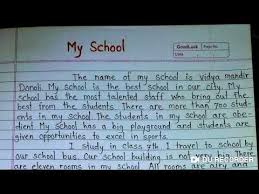 My School
GoodLuck Page No.
Date
The name of my school is Vidya mandir
Donoli. My school is the best school in our city. My
school has the most talented staff who bring out the
best from the students. There are more than 700 stud-
ents in my school. The students in my school are obe-
dient My school has a big playground and students are
given opportunities to excel in sports.
I study in class 7th. I travel to school by
our school bus. Our school building is There
are eleven rooms in my school. All rooms are airy and
DU RECORDER